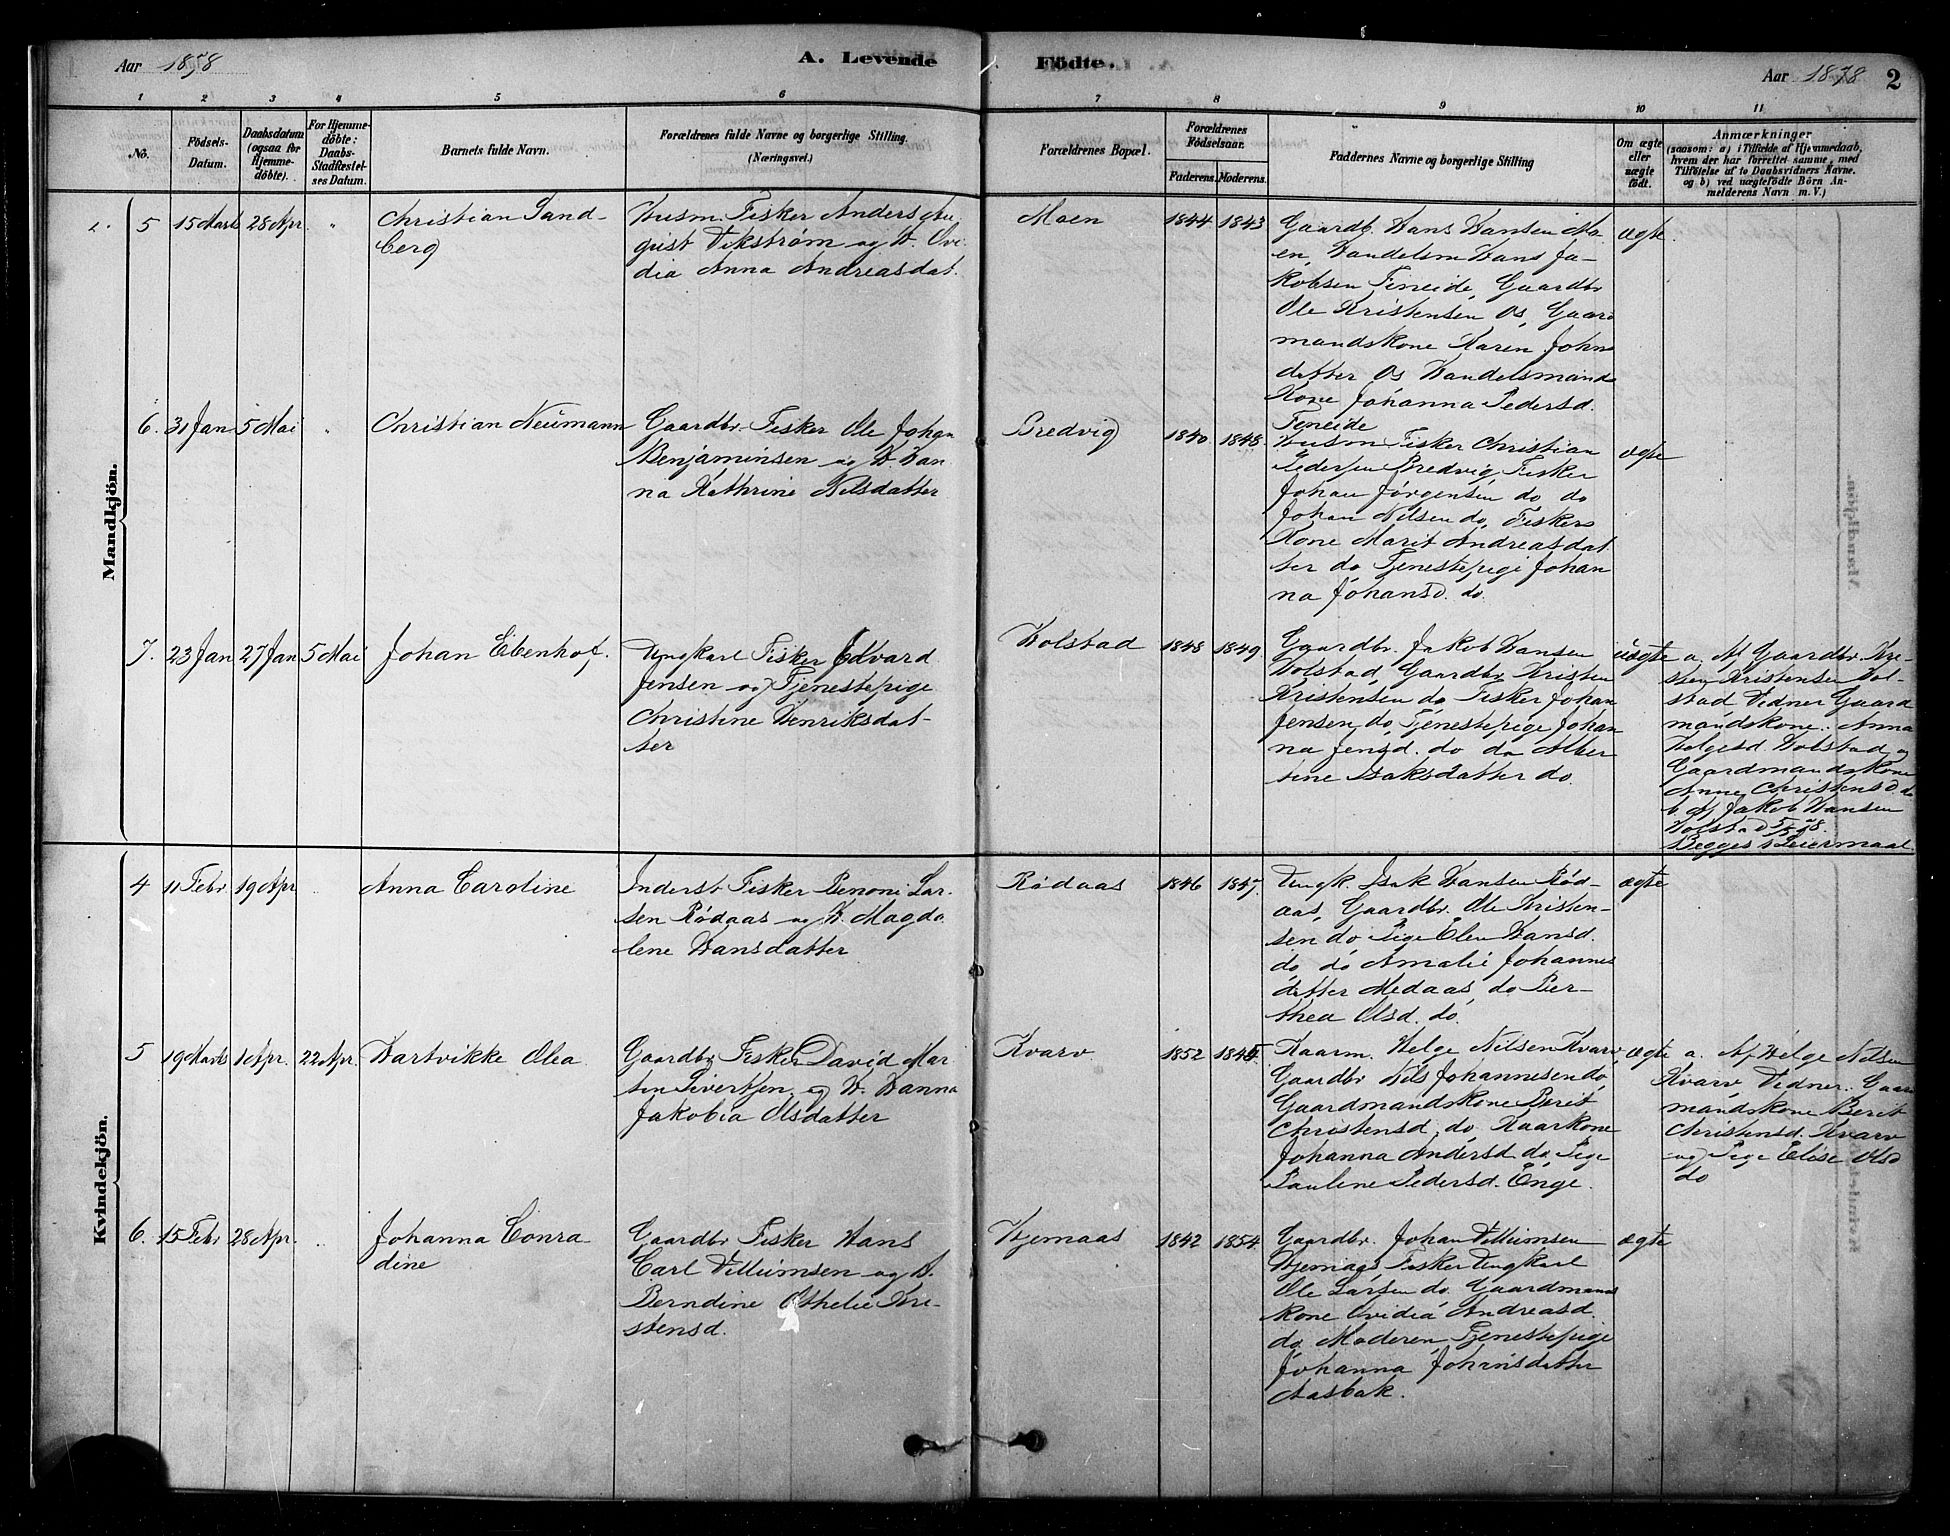 Aar 1878
A. Levende
Födte.
Aar 1878
2
1 2 3 4 5 6 7 8 9 10 11
No.
Födsels-
Datum.
Daabsdatum
(ogsaa for
Hjemme-
döbte).
For Hjemme-
döbte:
Daabs-
Stadfæstel-
ses Datum.
Barnets fulde Navn.
Forældrenes fulde Navne og borgerlige Stilling.
(Næringsvei.)
Forældrenes Bopæl.
Forældrenes
Födselsaar.
Faderens. Moderens.
Faddernes Navne og borgerlige Stilling
Om ægte
eller
uægte
födt.
Anmærkninger
(saasom: a) i Tilfælde af Hjemmedaab,
hvem der har forrettet samme, med
Tilföielse af to Daabsvidners Navne.
og b) ved uægtefödte Börn An-
melderens Navn m. V.)
Mandkjön.
5 15 Marts 28 Apr. "
Christian Sand-
berg
Husm. Fisker Anders Au-
gust Vikstrøm og H. Ovi-
dia Anna Andreasdat.
Moen
1844 1843
Gaardb. Hans Hansen Mo-
en, Handelsm Hans Ja-
kobsen Fineide, Gaardbr
Ole Kristensen Os, Gaard
mandskone Karen Johns
datter Os Handelsmands
Kone Johanna Pedersd.
Fineide
ægte.
6. 31 Jan 5 Mai "
Christian Neümann
Gaardbr. Fisker Ole Johan
Benjaminsen og H. Han
na Kathrine Nilsdatter
Bredvig
1840 1848.
Husm Fisker Christian
Pedersen Bredvig, Fisker
Johan Jørgensen do do
Johan Nilsen do, Fiskers
Kone Marit Andreasdat
ter do Tjenestepige Johan
na Johansd. do.
ægte
7. 23 Jan 27 Jan 5 Mai
Johan Ebenhof.
Ungkarl Fisker Edvard
Jensen og Tjenestepige
Christine Henriksdat-
ter
Holstad
1848 1849
Gaardbr. Jakob Hansen
Holstad, Gaardbr Kristen
Kristensen do Fisker Johan
Jensen do, Tjenestepige Johan
na Jensd. do do Alber
tine Isaksdatter do.
uægte
a. Af Gaardbr. Kri-
sten Kristensen Hol-
stad Vidner Gaard
mandskone. Anna
Helgesd. Holstad og
Gaardmandskone
Anne Christensd. do
b. Af Jakob Hansen
Holstad 5/5 78.
Begges 1 Leiermaal.
Kvindekjön.
4 11 Febr 19 Apr "
Anna Caroline
Inderst Fisker Benoni Lar-
sen Rødaas og H. Magda
lene Hansdatter
Rødaas
1846 1847.
Ungk. Isak Hansen Rød-
aas, Gaardbr. Ole Kristen-
sen do Pige Elen Hansd.
do do Amalie Johannes
datter Medaas, do Ber-
thea Olsd. do.
ægte
5 19 Marts 1 Apr. 22 Apr.
Hartvikke Olea
Gaardbr Fisker David Mar
tin Sivertsen og H. Hanna
Jakobia Olsdatter
Kvarv
1852 1845.
Kaarm. Helge Nilsen Kvarv
Gaardbr Nils Johannesen do,
Gaardmandskone Berit
Christensd. do Kaarkone
Johanna Andersd. do, Pige
Pauline Pedersd. Enge.
ægte
a. Af Helge Nilsen
Kvarv Vidner. Gaard
mandskone Berit
Christensd. Kvarv
og Pige Elise Olsd
do
6. 15 Febr 28 Apr. "
Johanna Conra
dine
Gaardbr Fisker Hans
Carl Villumsen og H.
Berndine Othelie Kri-
stensd.
Hjemaas
1842 1854
Gaardbr. Johan Villumsen
Hjemaas Fisker Ungkarl
Ole Larsen do. Gaardmands
kone Ovidia Andreasd.
do Moderen, Tjenestepige
Johanna Johansdatter
Aasbak.
ægte